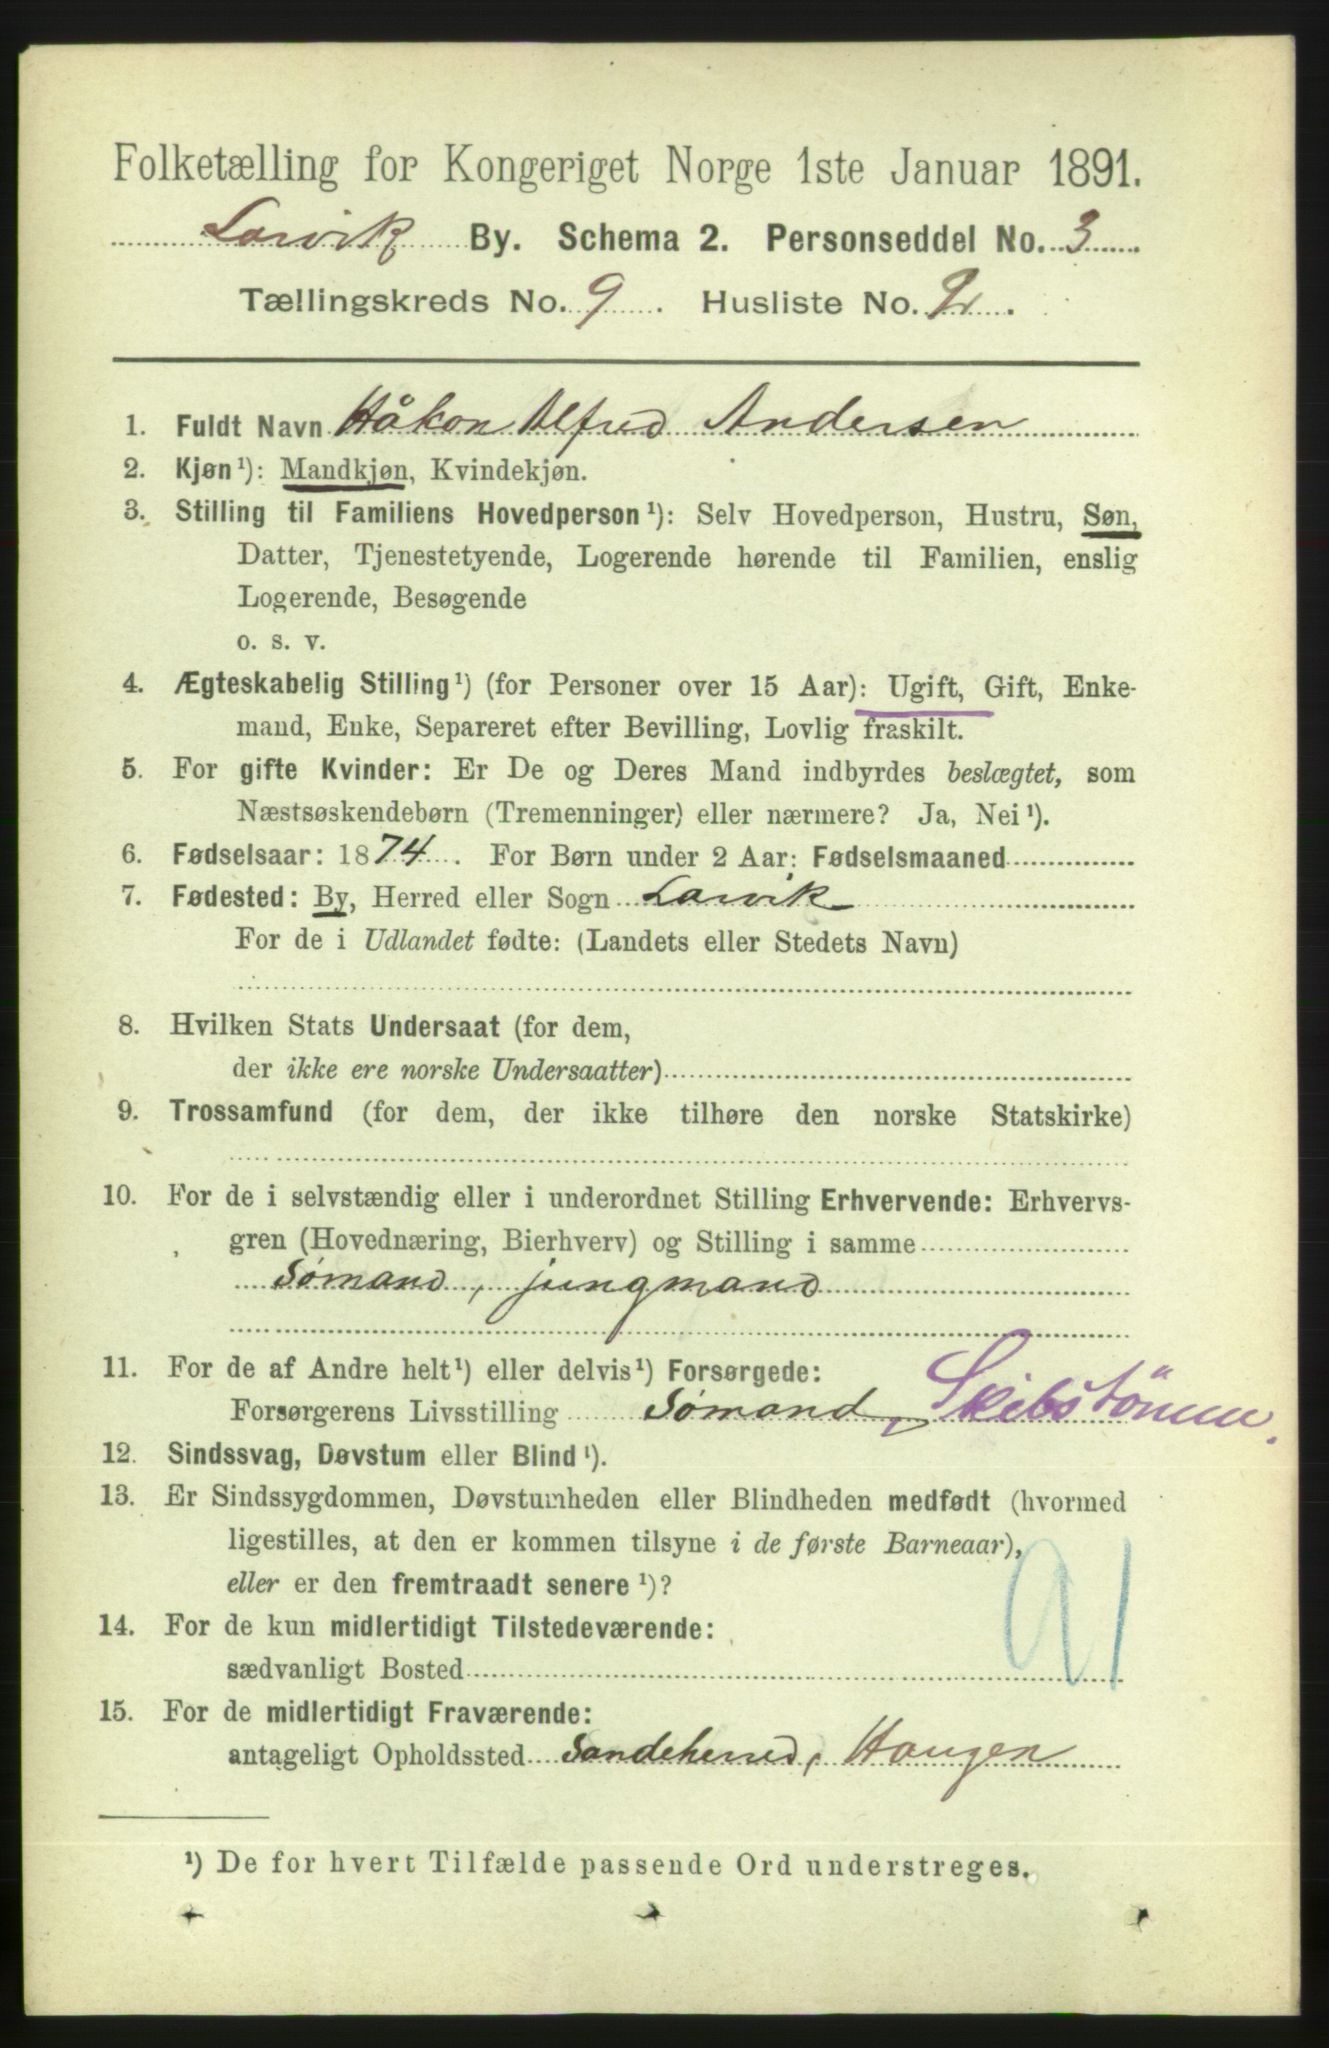 Folketælling for Kongeriget Norge 1ste Januar 1891.
Larvik By. Schema 2. Personseddel No. 3
Tællingskreds No. 9. Husliste No. 2.
1. Fuldt Navn Håkon Alfred Andersen
2. Kjøn¹): Mandkjøn, Kvindekjøn.
3. Stilling til Familiens Hovedperson¹): Selv Hovedperson, Hustru, Søn,
Datter, Tjenestetyende, Logerende hørende til Familien, enslig
Logerende, Besøgende
o. s. v.
4. Ægteskabelig Stilling¹) (for Personer over 15 Aar): Ugift, Gift, Enke-
mand, Enke, Separeret efter Bevilling, Lovlig fraskilt.
5. For gifte Kvinder: Er De og Deres Mand indbyrdes beslægtet, som
Næstsøskendebørn (Tremenninger) eller nærmere? Ja, Nei¹).
6. Fødselsaar: 1874. For Børn under 2 Aar: Fødselsmaaned
7. Fødested: By, Herred eller Sogn Larvik
For de i Udlandet fødte: (Landets eller Stedets Navn)
8. Hvilken Stats Undersaat (for dem,
der ikke ere norske Undersaatter)
9. Trossamfund (for dem, der ikke tilhøre den norske Statskirke)
10. For de i selvstændig eller i underordnet Stilling Erhvervende: Erhvervs-
gren (Hovednæring, Bierhverv) og Stilling i samme
Sømand, jungmand
11. For de af Andre helt¹) eller delvis¹) Forsørgede:
Forsørgerens Livsstilling Sømand, Skibstömm.
12. Sindssvag, Døvstum eller Blind¹).
13. Er Sindssygdommen, Døvstumheden eller Blindheden medfødt (hvormed
ligestilles, at den er kommen tilsyne i de første Barneaar),
eller er den fremtraadt senere¹)?
91
14. For de kun midlertidigt Tilstedeværende:
sædvanligt Bosted
15. For de midlertidigt Fraværende:
antageligt Opholdssted Sandeherred, Haugen
¹) De for hvert Tilfælde passende Ord understreges.